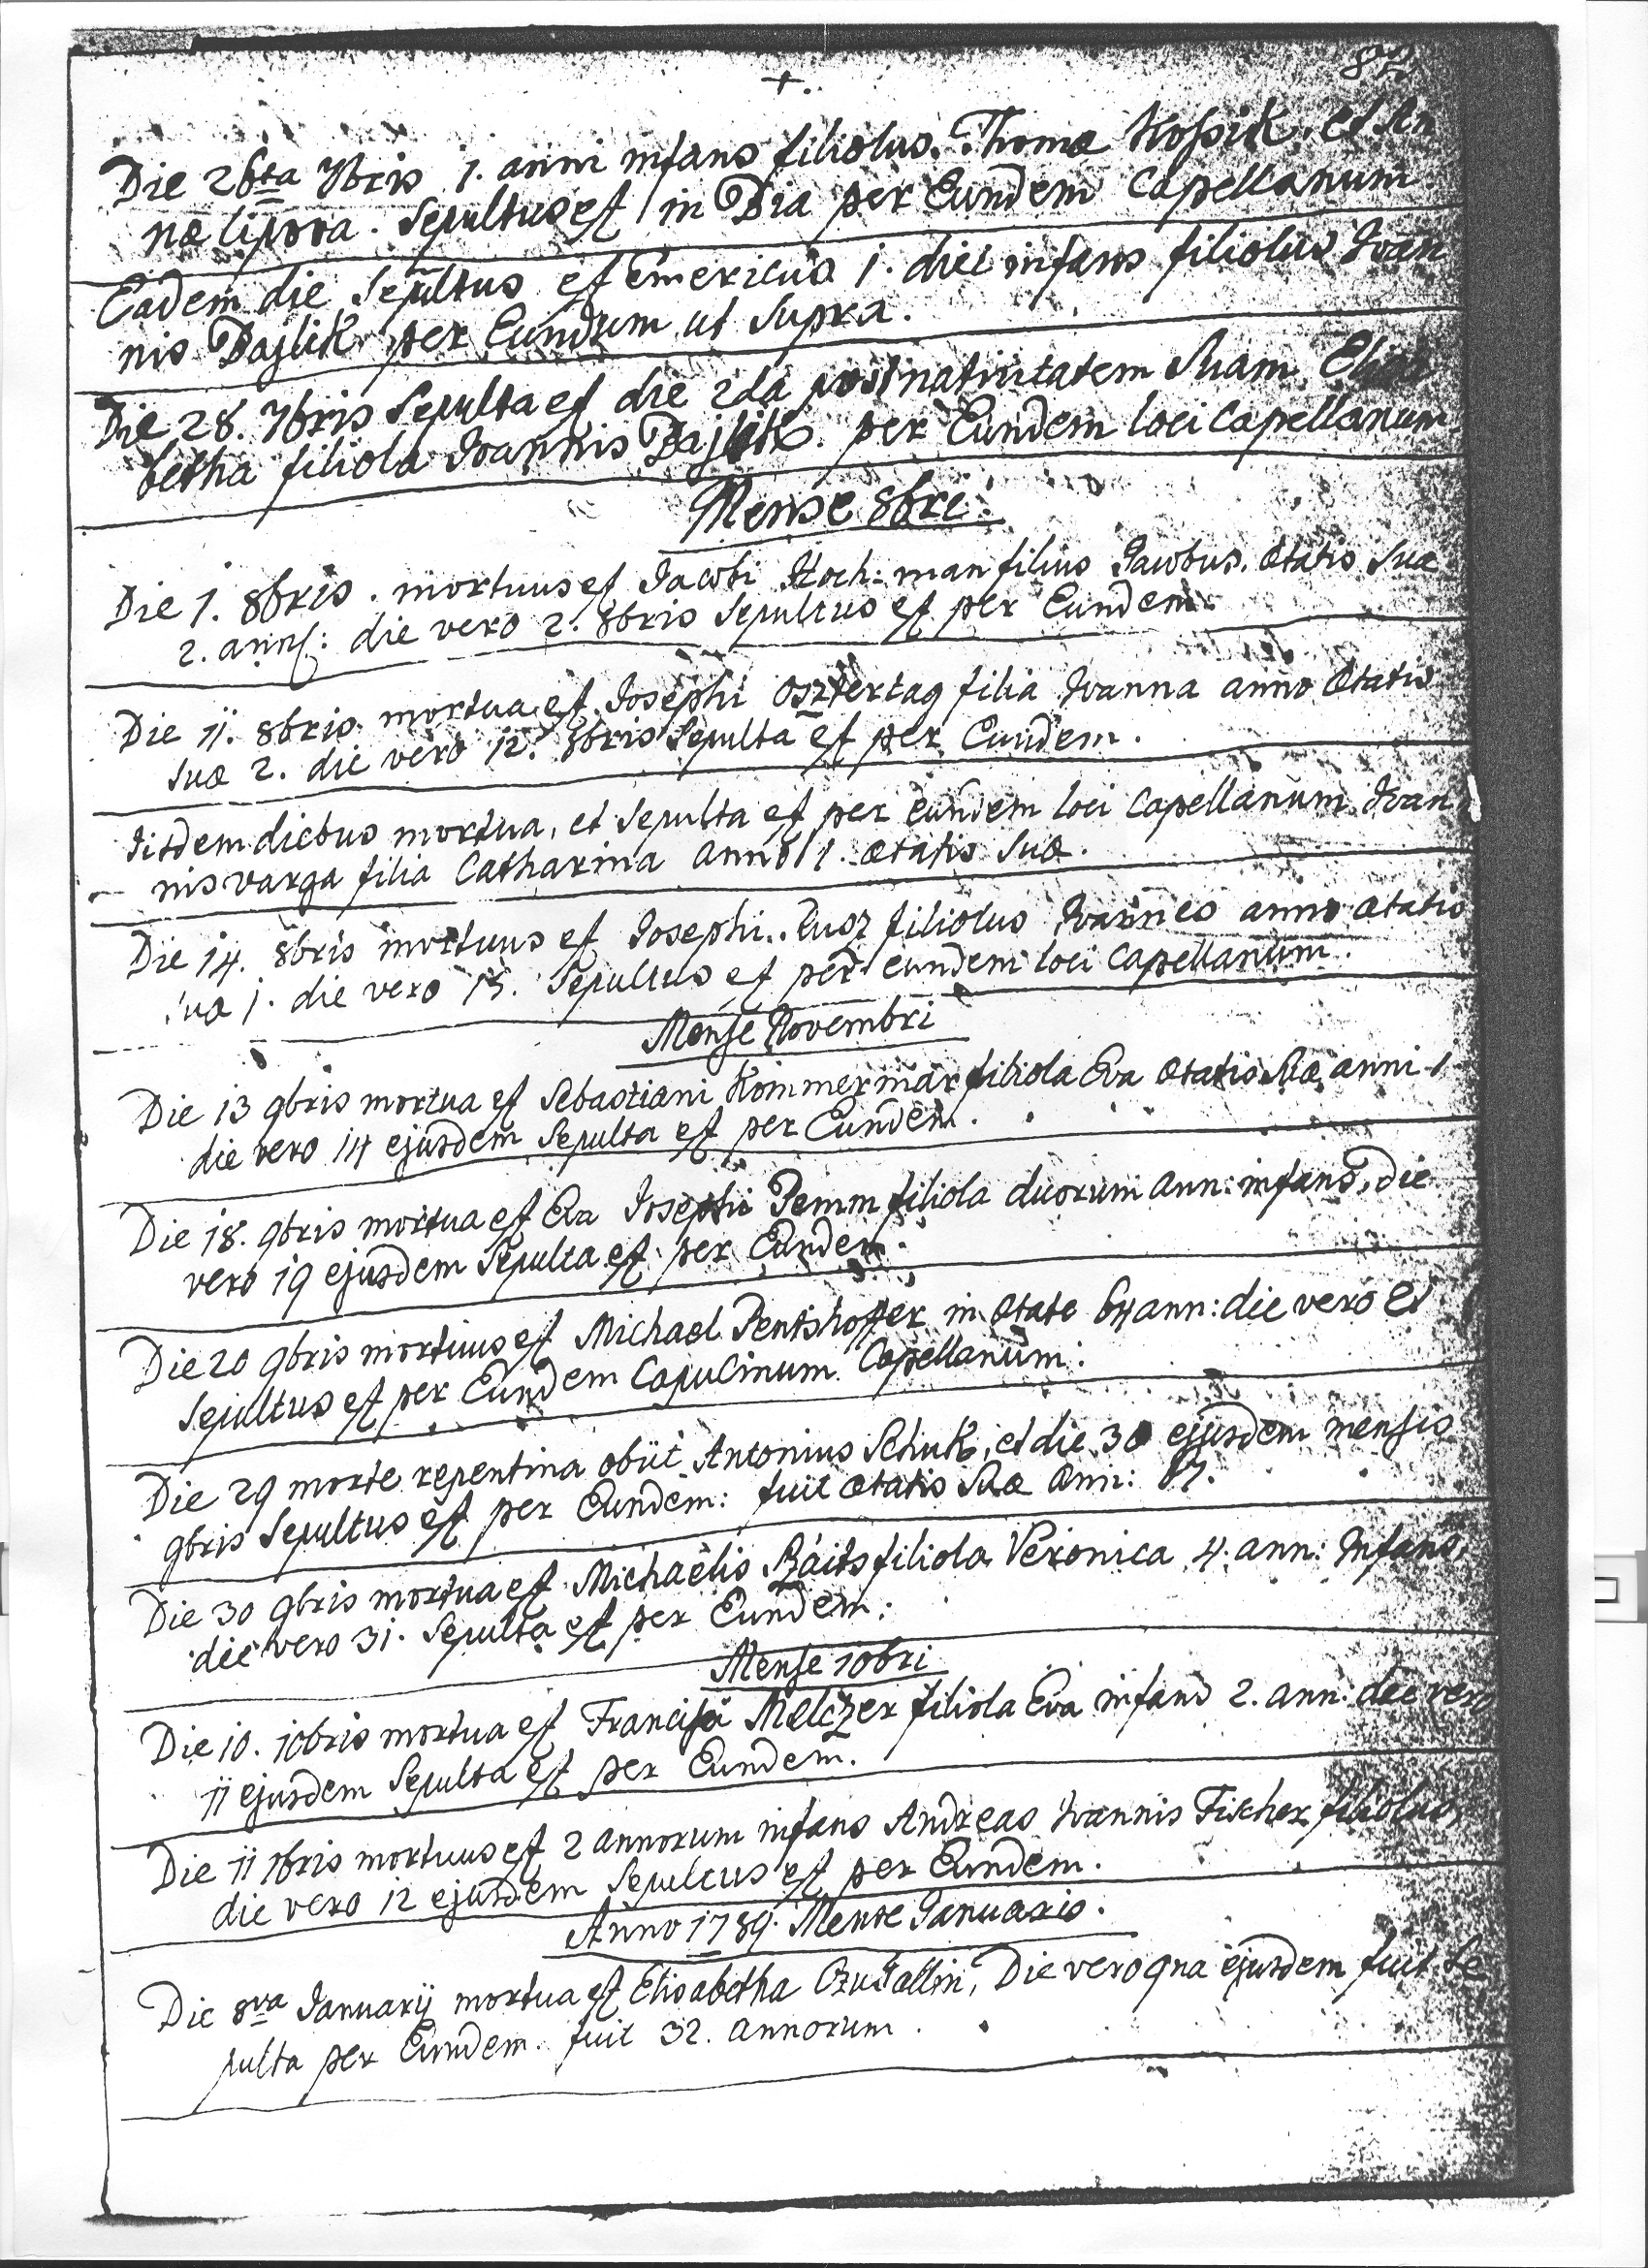 82
+.
Die 26ta 7bris 1. anni infans filiolus Thomæ Kossik. et An
næ Lipova. Sepultus est in Dia per Eundem Capellanum.
Eadem die Sepultus est Emericus 1. diei infans filiolus Ioan
nis Dajlik per Eundum ut Supra.
Die 28. 7bris Sepulta est die 2da post nativitatem Suam Elisa
betha filiola Ioannis Dajlik. per Eundem loci Capellanum
Mense 8bri.
Die 1. 8bris. mortuus est Iacobi Hoch=man filius Iacobus. ætatis Suæ
2. ann: die vero 2. 8bris Sepultus est per Eundem.
Die 11. 8bris mortua est Josephi Osztertag filia Ioanna anno ætatis
Suæ 2. die vero 12. 8bris Sepulta est per Eundem.
Iisdem diebus mortua, et Sepulta est per eundem loci Capellanum Ioan
nis Varga filia Catharina anno 1. ætatis Suæ.
Die 14. 8bris mortuus est Josephi Rusz filiolus Ioannes anno ætatis
Suæ 1. die vero 15. Sepultus est per eundem loci Capellanum.
Mense Novembri
Die 13 9bris mortua est Sebastiani Kimmermar filiola Eva ætatis Suæ anni 1
die vero 14 ejusdem Sepulta est per Eundem.
Die 18. 9bris mortua est Eva Josephi Pemm filiola duorum ann: infans, Die
vero 19 ejusdem Sepulta est per Eundem.
Die 20 9bris mortuus est Michael Pentshoffer in ætate 64 ann: die vero 21
Sepultus est per Eundem Capucinum Capellanum.
Die 29 morte repentina obiit Antonius Schuk, et die 30 ejusdem mensis
9bris Sepultus est per Eundem: fuit ætatis Suæ Ann:
Die 30 9bris mortua est Michaelis Raits filiola Veronica 4. ann: Infans,
die vero 31. Sepulta est per Eundem.
Mense 10bri
Die 10. 10bris mortua est Francisci Melczer filiola Eva infans 2. ann: die vero
11 ejusdem Sepulta est per Eundem.
Die 11 1bris mortuus est 2 annorum infans Andreas Ioannis Fischer filiolus,
die vero 12 ejusdem Sepultus est per Eundem.
Anno 1789. Mense Januario.
Die 8va Januarij mortua est Elisabetha Czudallin, Die vero 9na ejusdem fuit Se
pulta per Eundem. fuit 32. annorum.